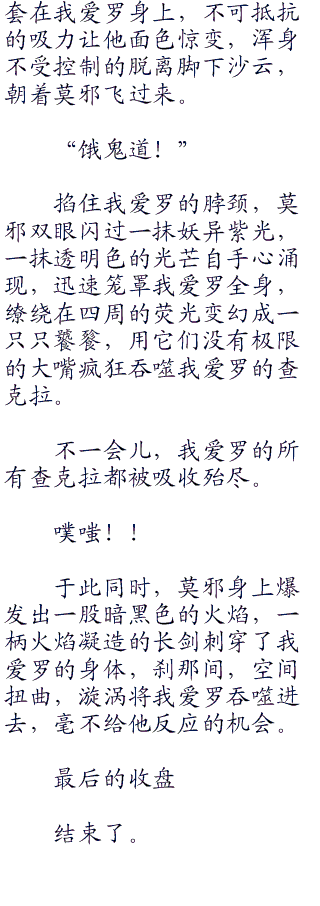 套在我爱罗身上，不可抵抗
的吸力让他面色惊变，浑身
不受控制的脱离脚下沙云，
朝着莫邪飞过来。
“饿鬼道！”
掐住我爱罗的脖颈，莫
邪双眼闪过一抹妖异紫光，
一抹透明色的光芒自手心涌
现，迅速笼罩我爱罗全身，
缭绕在四周的荧光变幻成一
只只饕餮，用它们没有极限
的大嘴疯狂吞噬我爱罗的查
克拉。
不一会儿，我爱罗的所
有查克拉都被吸收殆尽。
噗嗤！！
于此同时，莫邪身上爆
发出一股暗黑色的火焰，一
柄火焰凝造的长剑刺穿了我
爱罗的身体，刹那间，空间
扭曲，漩涡将我爱罗吞噬进
去，毫不给他反应的机会。
最后的收盘
结束了。